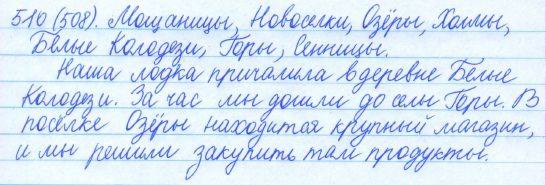 510 (508). Мощаницы, Новоселки, Озёры, Холмы,
Белые Колодези, Горы, Сенницы.
Наша лодка причалила в деревне Белые
Колодези. За час мы дошли до селы Горы. В
посёлке Озёры находится крупный магазин,
и мы решили закупить там продукты.